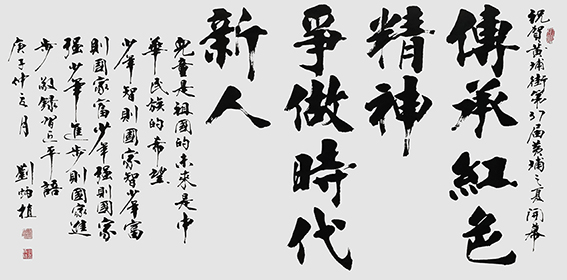 祝賀黃埔街第37届黃埔之夏開幕
傳承紅色
精神
爭做時代
新人
兒童是祖國的未來是中
華民族的希望
少年智則國家智少年富
則國家富少年强則國家
强少年進步則國家進
步敬錄習近平語
庚子仲夏月
劉炳植